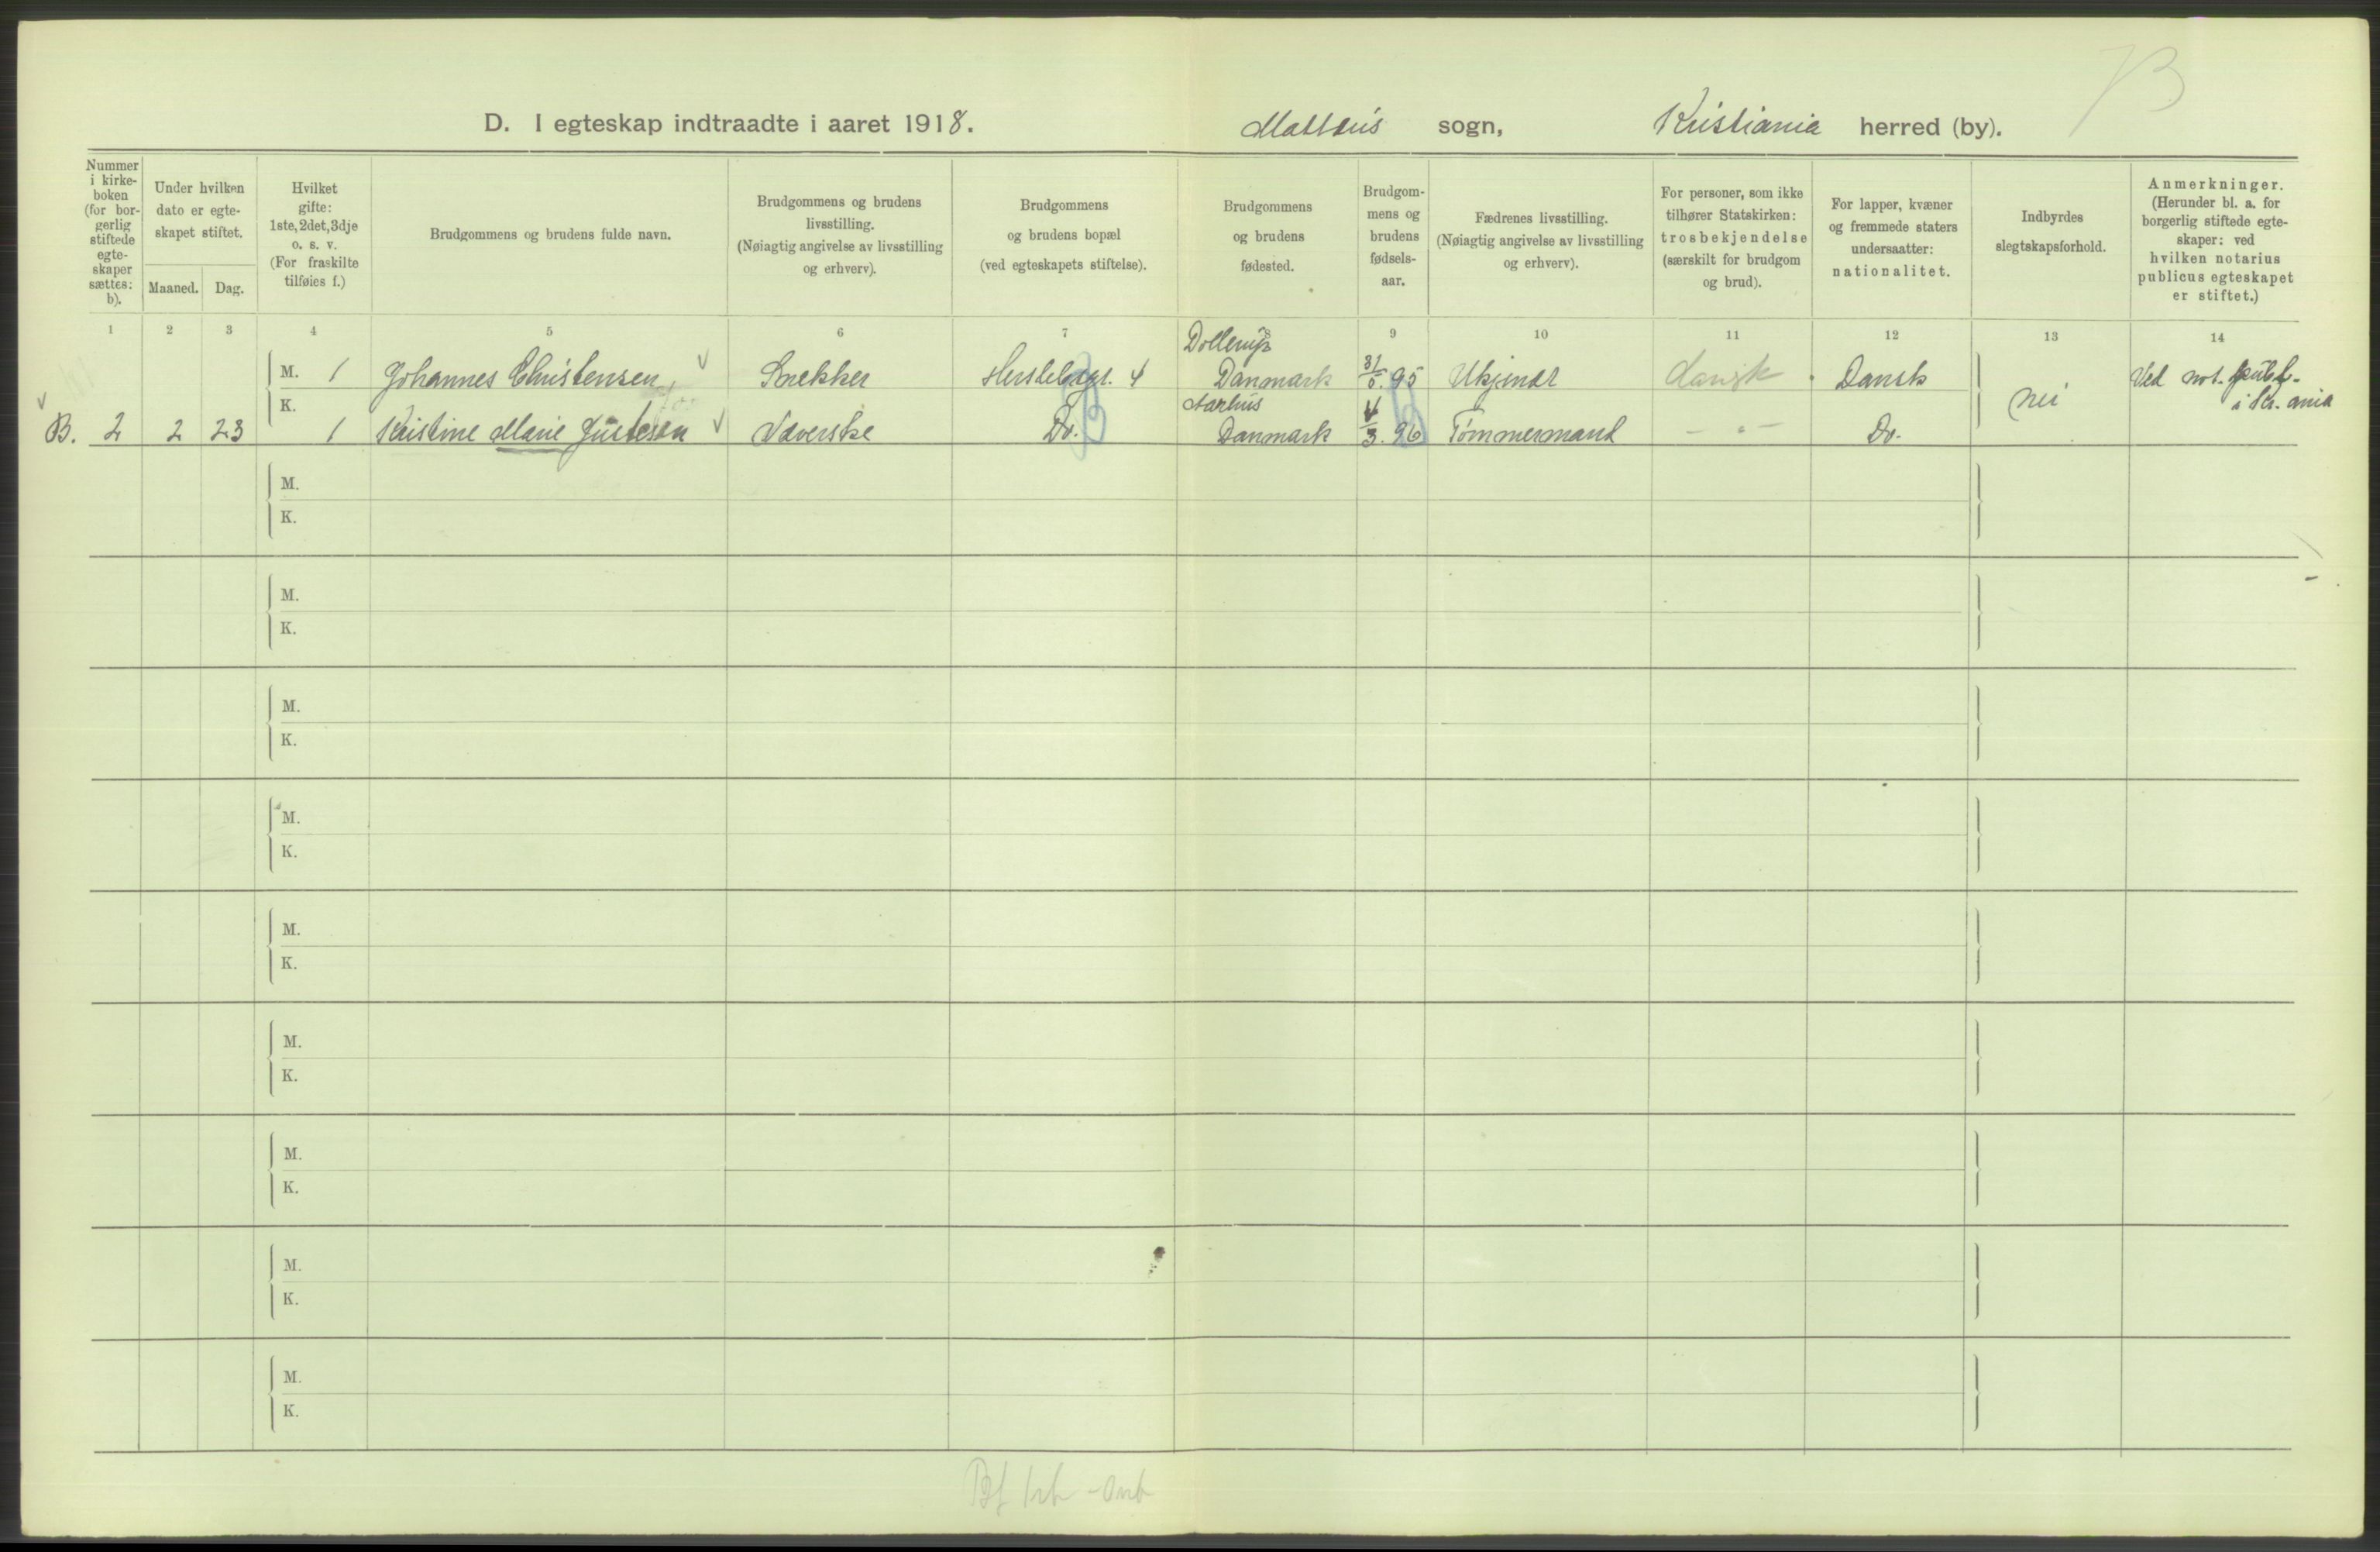 B
D. I egteskap indtraadte i aaret 1918. Mattæus sogn, Kristiania herred (by).
Nummer i kirke-boken (for bor-gerlig stiftede egte-skaper sættes: b).
Under hvilken dato er egte-skapet stiftet.
Maaned. Dag.
Hvilket gifte: 1ste, 2det, 3dje o. s. v. (For fraskilte tilføies f.)
Brudgommens og brudens fulde navn.
Brudgommens og brudens livsstilling. (Nøiagtig angivelse av livsstilling og erhverv).
Brudgommens og brudens bopæl (ved egteskapets stiftelse).
Brudgommens og brudens fødested.
Brudgom-mens og brudens fødsels-aar.
Fædrenes livsstilling. (Nøiagtig angivelse av livsstilling og erhverv).
For personer, som ikke tilhører Statskirken: trosbekjendelse (særskilt for brudgom og brud).
For lapper, kvæner og fremmede staters undersaatter: nationalitet.
Indbyrdes slegtskapsforhold.
Anmerkninger. (Herunder bl. a. for borgerlig stiftede egte-skaper: ved hvilken notarius publicus egteskapet er stiftet.)
1 2 3 4 5 6 7 8 9 10 11 12 13 14
Dollerup
M. 1 Johannes Christensen, Snekker Herslebsgt. 4 Danmark 31/5. 95 Ukjendt dansk Dansk nei Ved not. publ. i Kr.ania
K. Aarhus
B. 2 2 23 1 Kristine Marie Justesen Væverske Do. Danmark 4/3. 96 Tømmermand - " - Do.
M.
K.
M.
K.
M.
K.
M.
K.
M.
K.
M.
K.
M.
K.
M.
K.
M.
K.